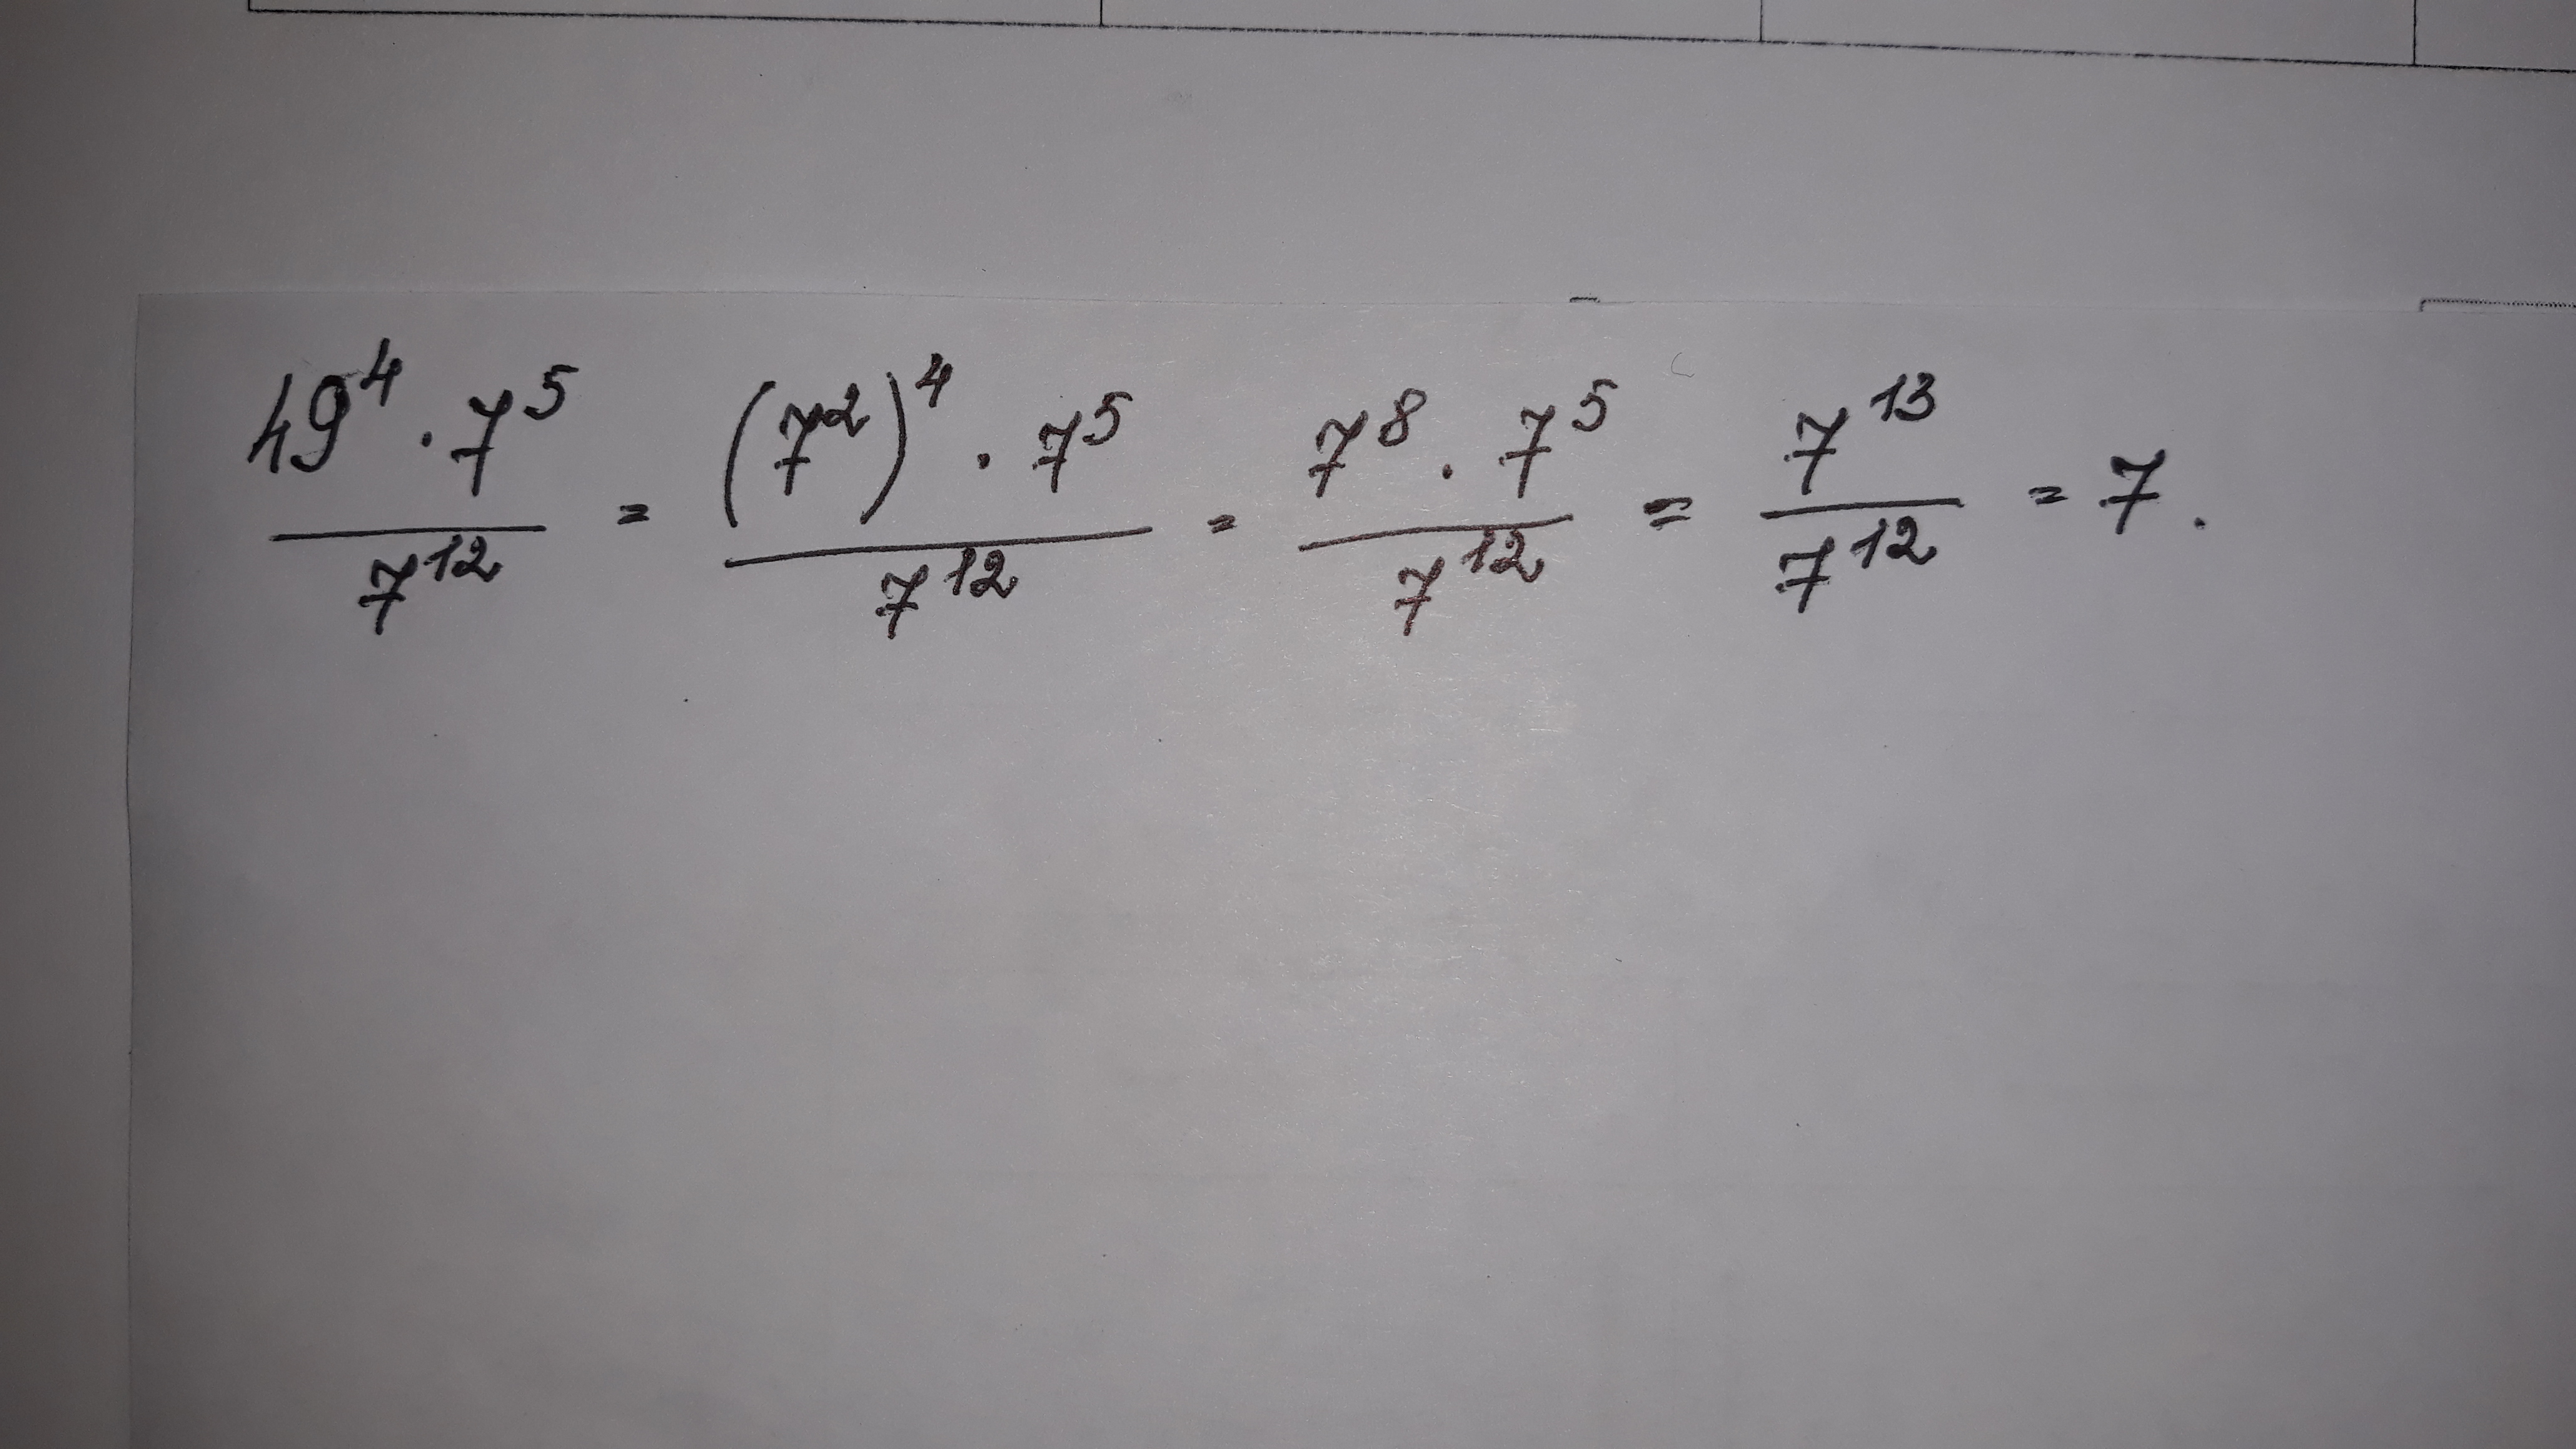 49⁴ · 7⁵ / 7¹² = (7²)⁴ · 7⁵ / 7¹² = 7⁸ · 7⁵ / 7¹² = 7¹³ / 7¹² = 7.